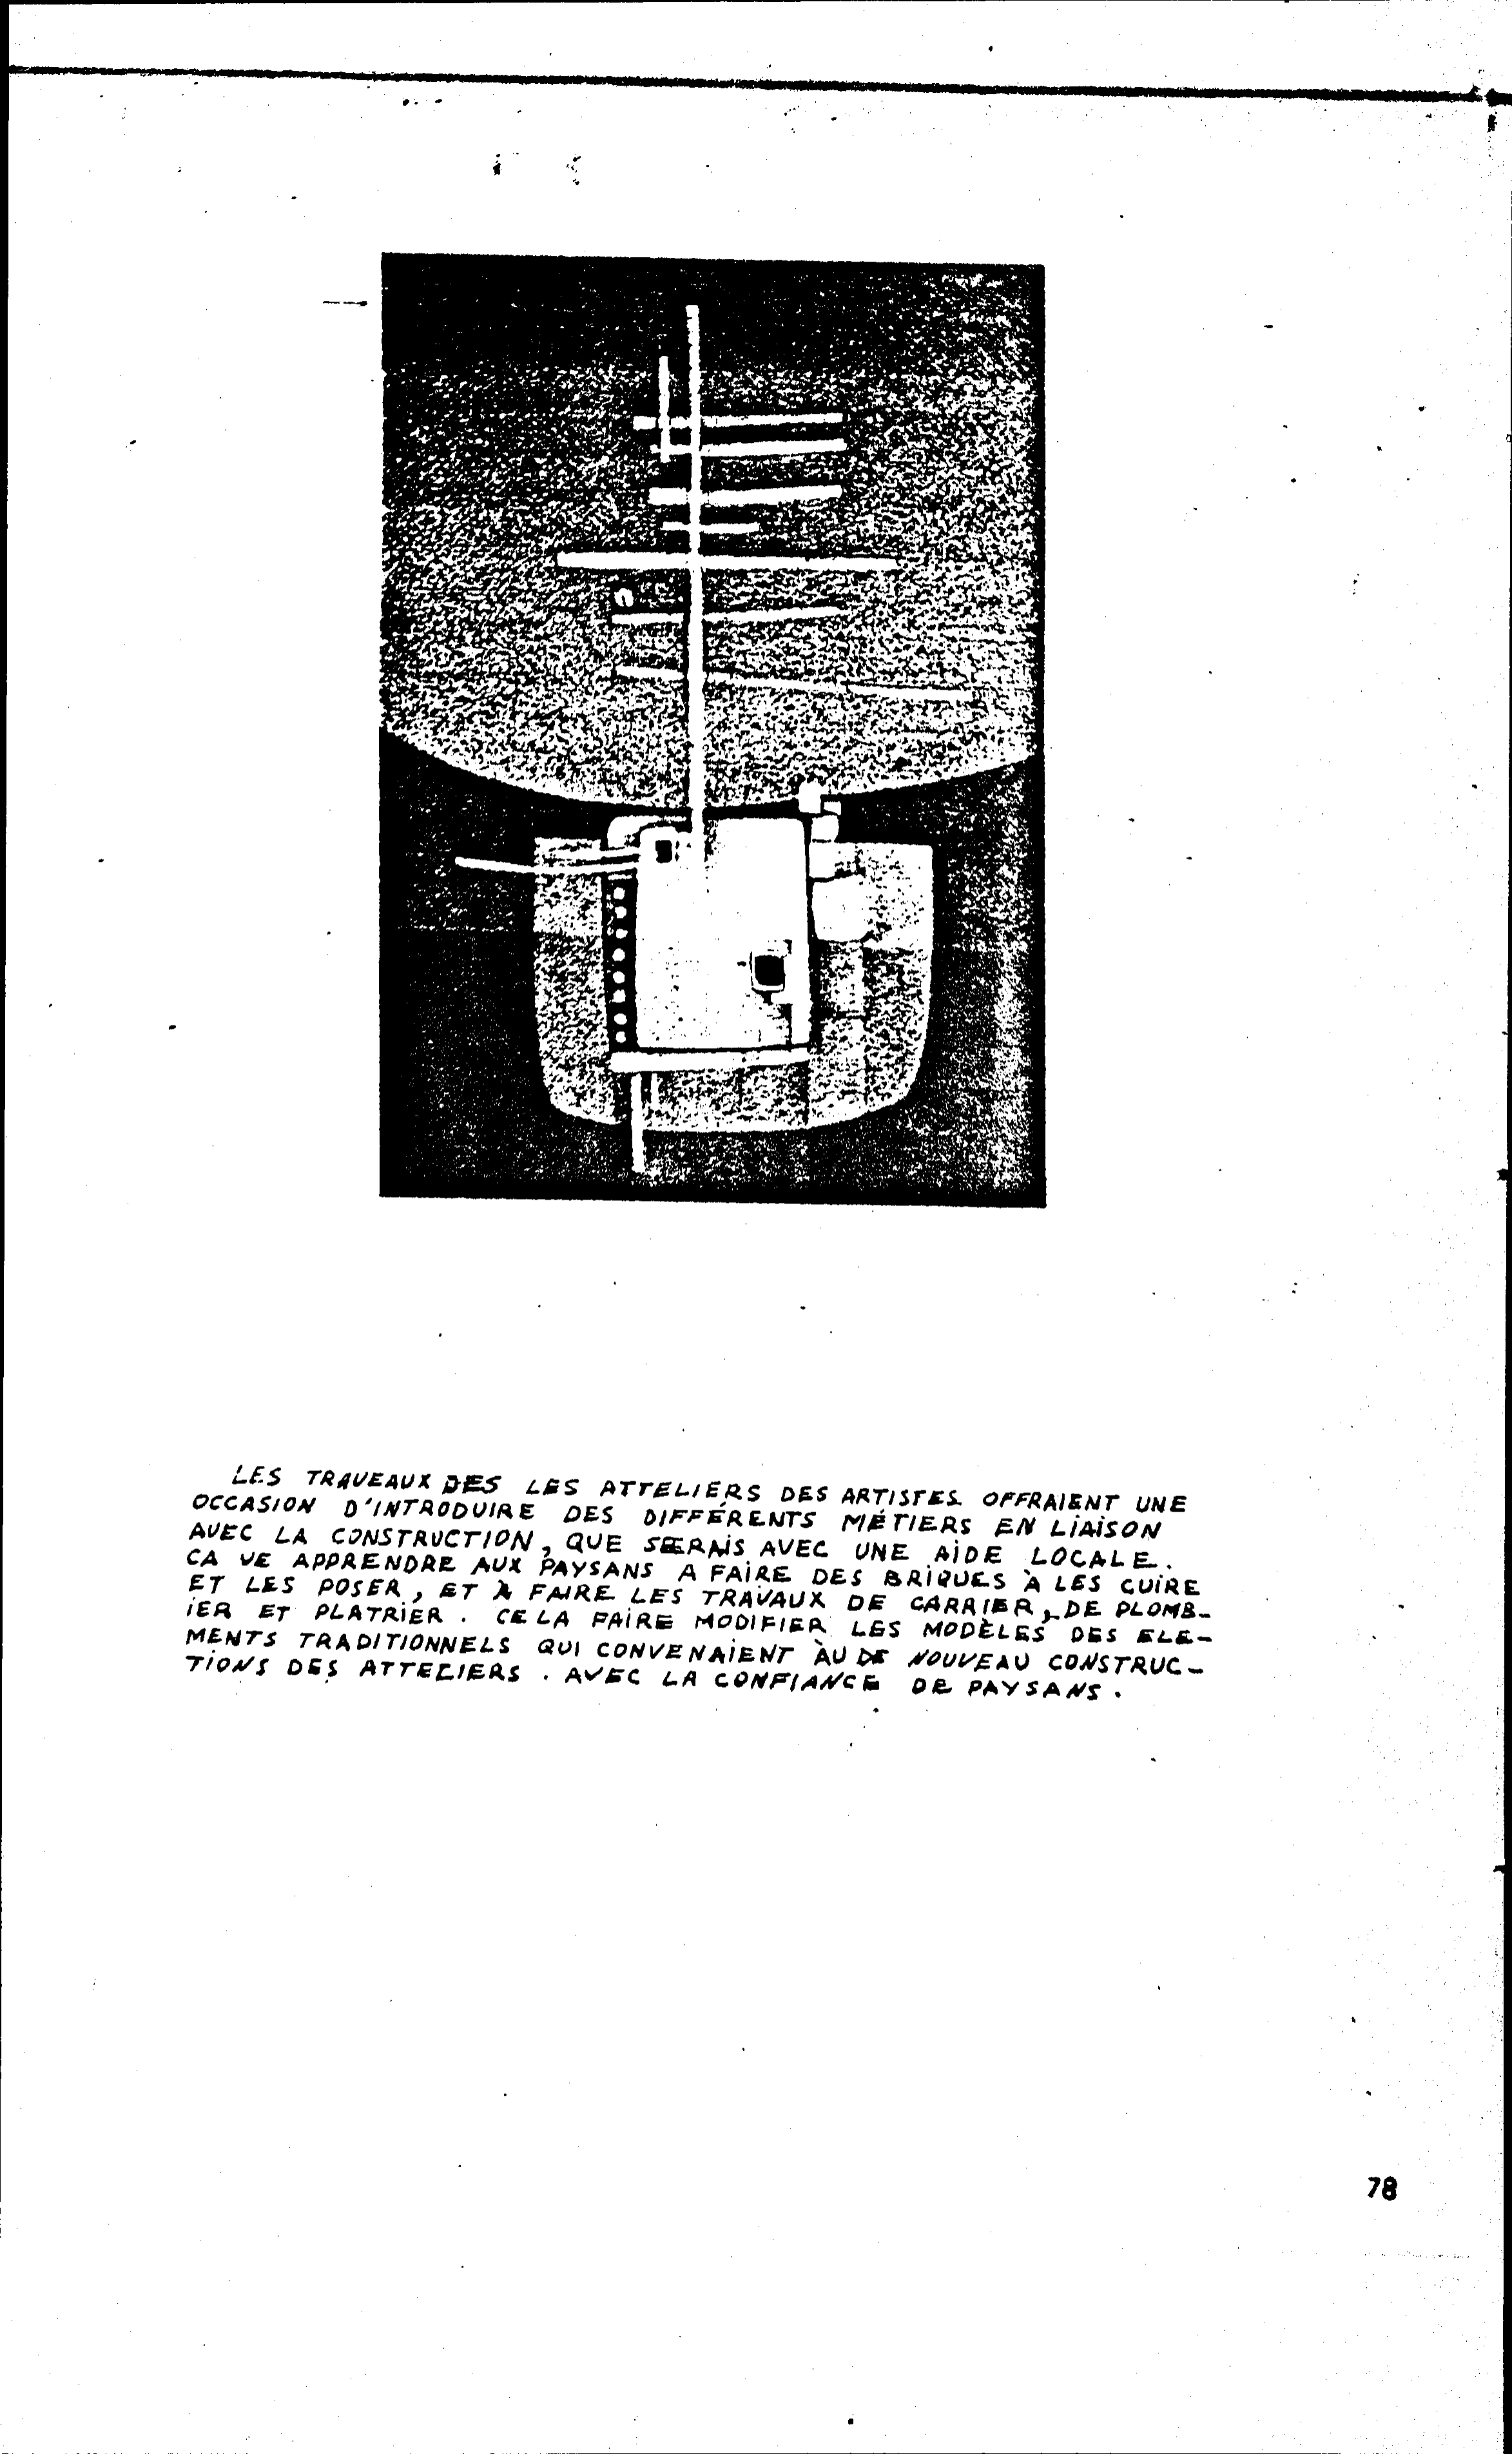 LES TRAVEAUX DES LES ATTELIÉRS DES ARTISTES OFFRAIENT UNE
OCCASION D'INTRODUIRE DES DIFFÉRENTS MÉTIERS EN LIAISON
AVEC LA CONSTRUCTION, QUE SERAIS AVEC UNE AIDE LOCALE.
CA VE APPRENDRE AUX PAYSANS A FAIRE DES BRIQUES À LES CUIRE
ET LES POSER, ET À FAIRE LES TRAVAUX DE CARRIER, DE PLOMB-
IER ET PLATRIER. CELA FAIRE MODIFIER LES MODÈLES DES ELE-
MENTS TRADITIONNELS QUI CONVENAIENT ÀU DE NOUVEAU CONSTRUC-
TIONS DES ATTELIERS. AVEC LA CONFIANCE DE PAYSANS.
78